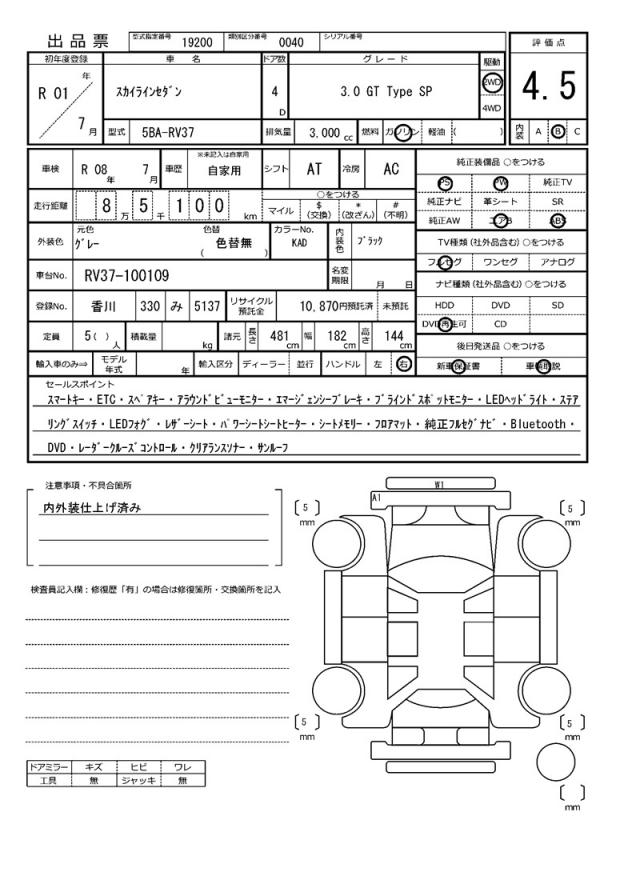 出品票 型式指定番号 19200 類別区分番号 0040 シリアル番号
初年度登録 車名 ドア数 グレード 駆動 評価点
R 01 年 7 月 スカイラインセダン 4 D 3.0 GT Type SP 2WD 4WD 4.5
型式 5BA-RV37 排気量 3,000 cc 燃料 ガソリン 軽油 ( ) 内装 A B C
車検 R 08 年 7 月 車歴 ※未記入は自家用 自家用 シフト AT 冷房 AC 純正装備品 ○をつける
PS PW 純正TV
走行距離 8 万 5 千 1 0 0 km ○をつける マイル $ (交換) * (改ざん) # (不明) 純正ナビ 革シート SR
純正AW エアB ABS
外装色 元色 グレー 色替 ( 色替無 ) カラーNo. KAD 内装色 ブラック TV種類 (社外品含む) ○をつける
フルセグ ワンセグ アナログ
車台No. RV37-100109 名変期限 月 日 ナビ種類 (社外品含む) ○をつける
登録No. 香川 330 み 5137 リサイクル預託金 10,870円預託済 未預託 HDD DVD SD
DVD再生可 CD
定員 5( ) 人 積載量 kg 諸元 長さ 481 cm 幅 182 cm 高さ 144 cm 後日発送品 ○をつける
輸入車のみ⇒ モデル年式 年 輸入区分 ディーラー 並行 ハンドル 左 右 新車保証書 車輌取説
セールスポイント
スマートキー・ETC・スペアキー・アラウンドビューモニター・エマージェンシーブレーキ・ブラインドスポットモニター・LEDヘッドライト・ステア
リングスイッチ・LEDフォグ・レザーシート・パワーシートシートヒーター・シートメモリー・フロアマット・純正フルセグナビ・Bluetooth・
DVD・レーダークルーズコントロール・クリアランスソナー・サンルーフ
注意事項・不具合箇所
内外装仕上げ済み
検査員記入欄：修復歴「有」の場合は修復箇所・交換箇所を記入
W1
A1
5
mm
5
mm
5
mm
5
mm
mm
ドアミラー キズ ヒビ ワレ
工具 無 ジャッキ 無